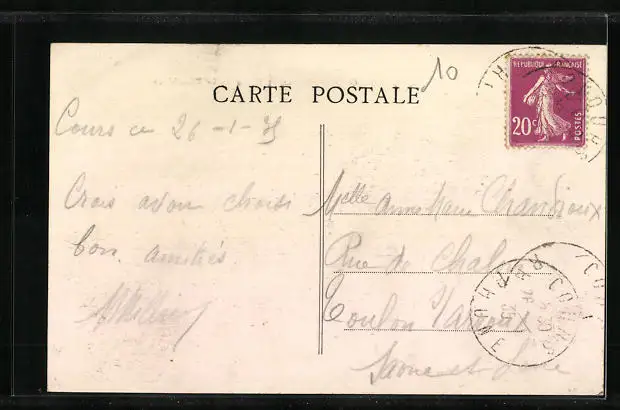 10
CARTE POSTALE
REPUBLIQUE FRANÇAISE
20c
POSTES
Cours ce 26-1-35
Crois avoir choisi
bon. amitiés.
Melle Anne Marie Chandioux
Rue de Chal
Toulon s/ Arroux
Saone et Loire
COURS
RHONE